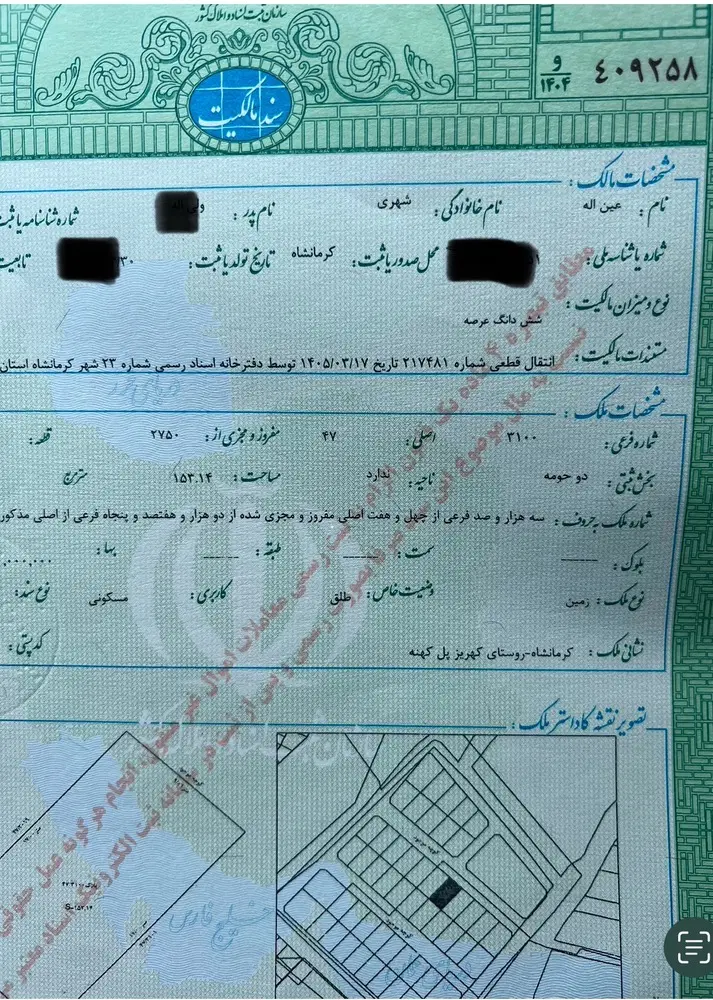 سازمان ثبت اسناد و املاک کشور
و
۱۴۰۴
۴۰۹۲۵۸
سند مالکیت
مشخصات مالک :
نام : عین اله نام خانوادگی : شهری نام پدر : شماره شناسنامه یا ثبت
شماره یا شناسه ملی : محل صدور یا ثبت : کرمانشاه تاریخ تولد یا ثبت : ۳۰ تابعیت
نوع و میزان مالکیت :
شش دانگ عرصه
مستندات مالکیت : انتقال قطعی شماره ۲۱۷۴۸۱ تاریخ ۱۴۰۵/۰۳/۱۷ توسط دفترخانه اسناد رسمی شماره ۲۳ شهر کرمانشاه استان
مشخصات ملک :
شماره فرعی : ۳۱۰۰ اصلی : ۴۷ مفروز و مجزی از : ۲۷۵۰ قطعه :
بخش ثبتی : دو حومه ناحیه : ندارد مساحت : ۱۵۳.۱۴ مترمربع
شماره ملک به حروف : سه هزار و صد فرعی از چهل و هفت اصلی مفروز و مجزی شده از دو هزار و هفتصد و پنجاه فرعی از اصلی مذکور
بلوک : سمت : طبقه : بها : ,۰۰۰,۰۰۰
نوع ملک : زمین وضعیت خاص : طلق کاربری : مسکونی نوع سند :
نشانی ملک : کرمانشاه-روستای کهریز پل کهنه کدپستی :
تصویر نقشه کاداستر ملک :
دریای خزر
خلیج فارس